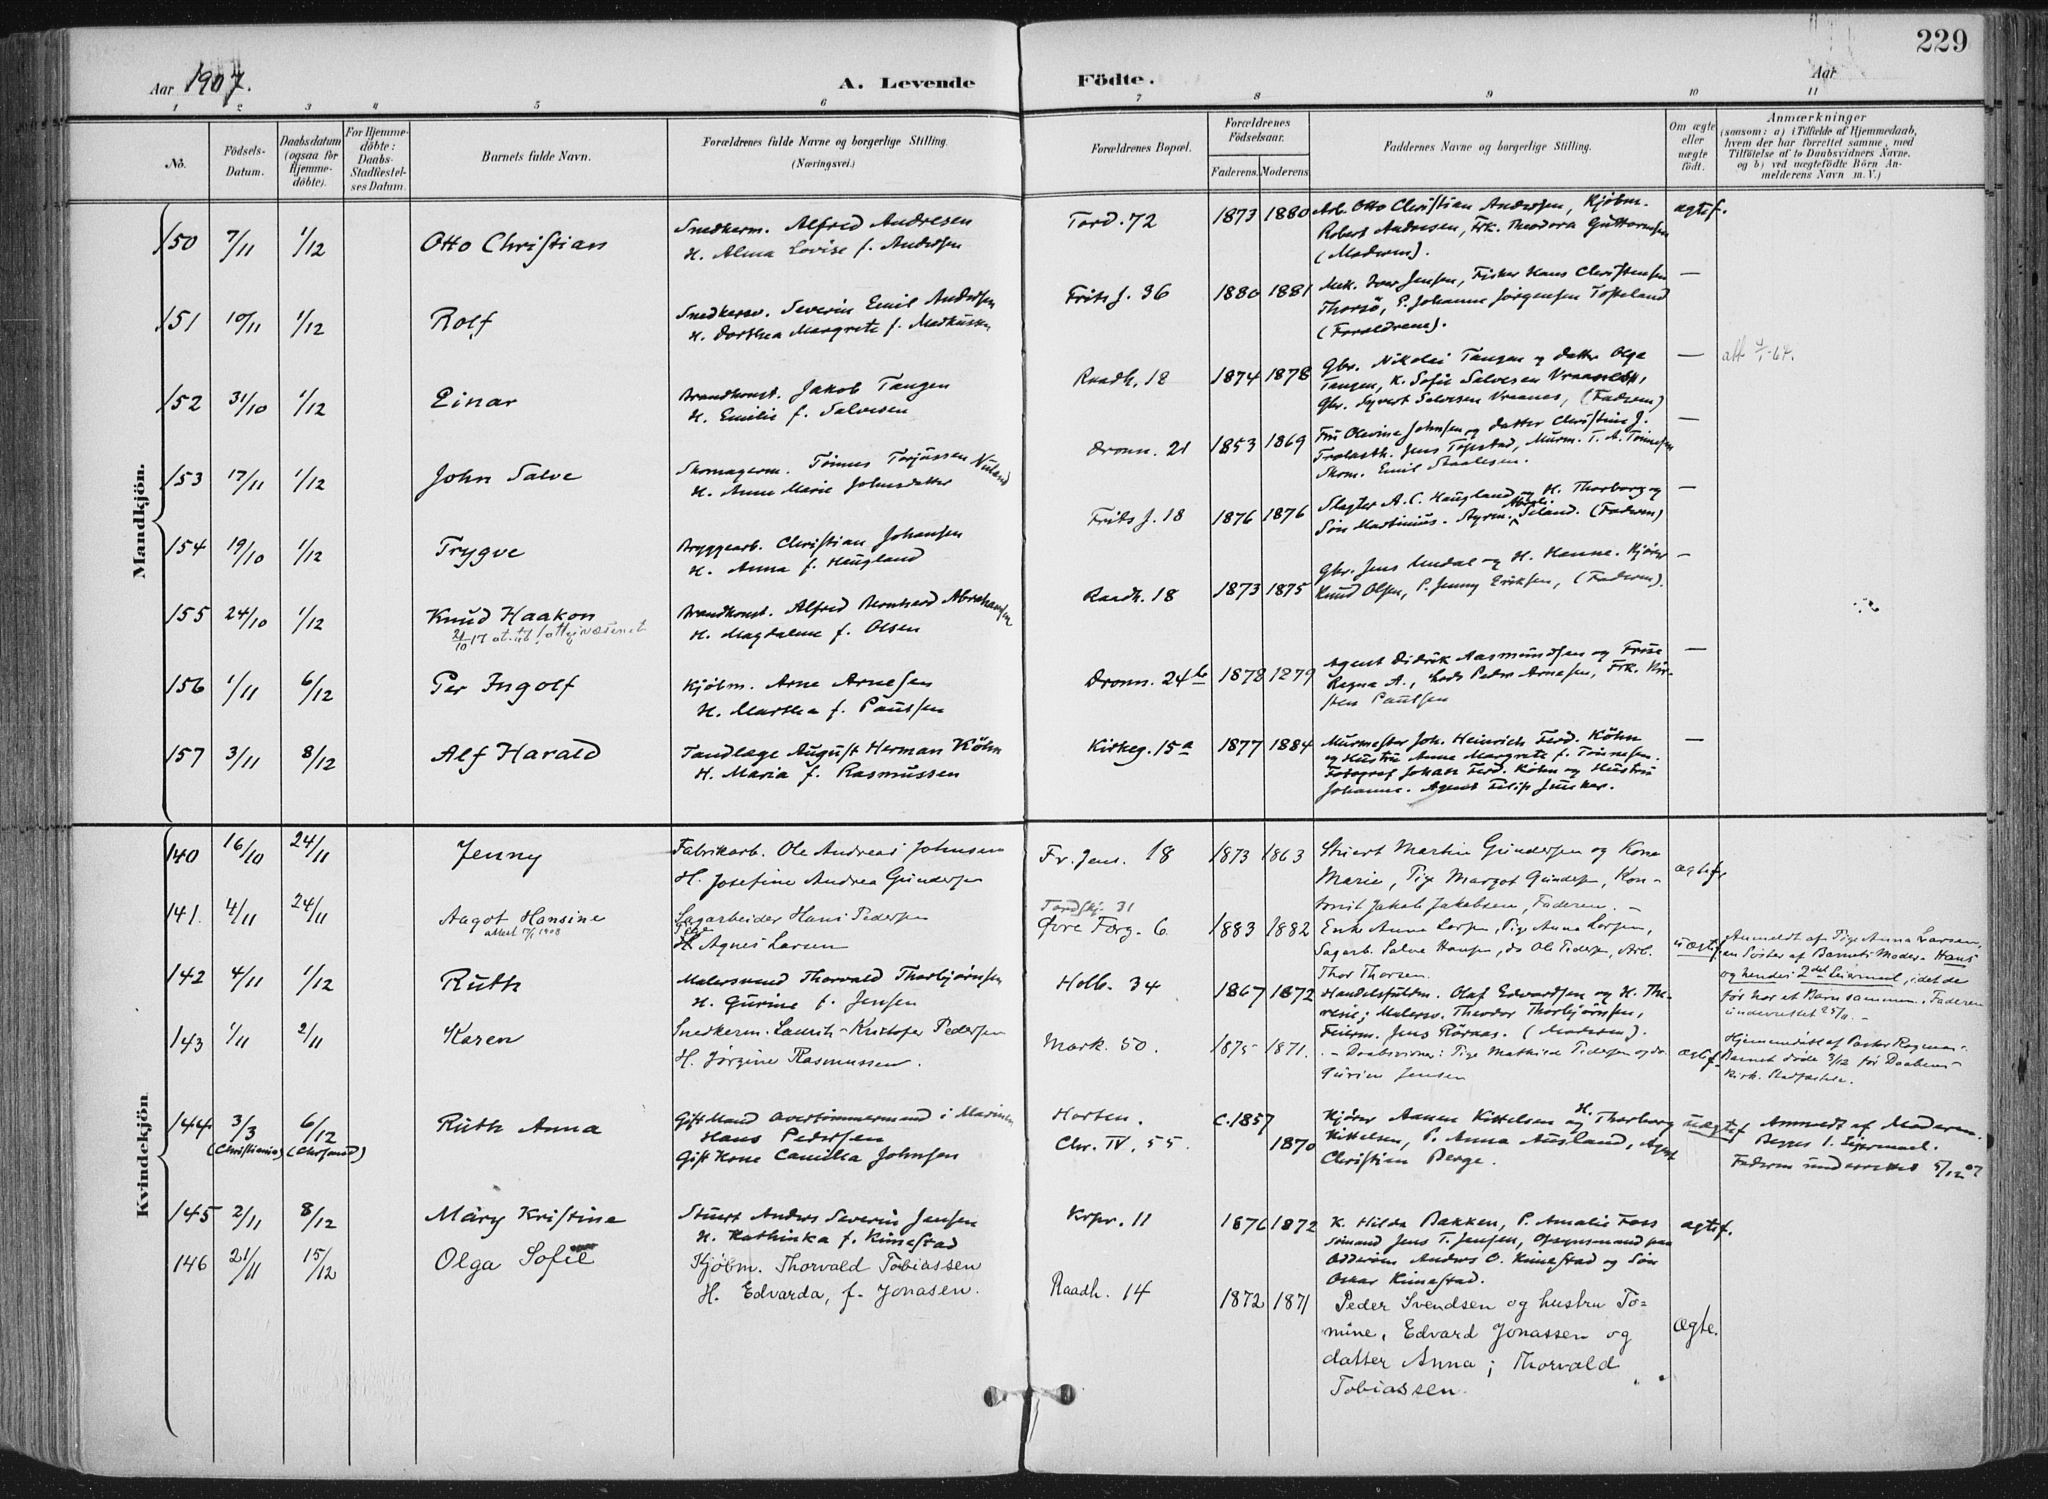 229
Aar 1907.
A. Levende Födte.
Aar
1 2 3 4 5 6 7 8 9 10 11
No.
Födsels-Datum.
Daabsdatum (ogsaa for Hjemmedöbte).
For Hjemmedöbte: Daabs-Stadfæstelses Datum.
Barnets fulde Navn.
Forældrenes fulde Navne og borgerlige Stilling.
(Næringsvei.)
Forældrenes Bopæl.
Forældrenes Födselsaar.
Faderens. Moderens.
Faddernes Navne og borgerlige Stilling.
Om ægte eller uægte födt.
Anmærkninger
(saasom: a) i Tilfælde af Hjemmedaab,
hvem der har forrettet samme, med
Tilföielse af to Daabsvidners Navne,
og b) ved uægtefödte Börn Anmelderens Navn m. V.)
Mandkjön.
150 7/11 1/12 Otto Christian
Snedkerm. Alfred Andresen
H. Alma Lovise f. Andersen
Tord. 72 1873 1880
Arb. Otto Christian Andersen, Kjøbm.
Robert Andresen, Frk. Theodora Guttormsen
(Moderen).
ægtef.
151 10/11 1/12 Rolf
Snedkersv. Severin Emil Andersen
H. Dorthea Margrete f. Markussen
Frits J. 36 1880 1881
Mek. Iver Jensen, Fisker Hans Christensen
Thorsö, P. Johanne Jörgensen Topeland
(Forældrene).
—
152 31/10 1/12 Einar
Brandkonst. Jakob Tangen
H. Emilie f. Salvesen
Raadh. 18 1874 1878
Gbr. Nikolei Tangen og datter Olga
Tangen, K. Sofie Salvesen
Gbr. Syvert Salvesen Vraanes, (Faderen)
—
153 17/11 1/12 John Salve
Skomagerm. Tönnes Torjussen Nuland
H. Anne Marie Johnsdatter
Dronn. 21 1853 1869
Fru Olevine Johnsen og datter Christine J.
Jens Topstad, Murm. T. A. Tönnesen
Skom. Emil Staalesen.
—
154 19/10 1/12 Trygve
Bryggearb. Christian Johansen
H. Anna f. Haugland
Frits J. 18 1876 1876
Slagter A. C. Haugland og H. Thorborg og
Sön Martinius. Seland. (Faderen)
—
155 24/10 1/12 Knud Haakon
Brandkonst. Alfred Bernhard Abrahamsen
H. Magdalene f. Olsen
Raadh. 18 1873 1875
Gbr. Jens Undal og H. Hanne. Kjörer
Knud Olsen, P. Jenny Eriksen, (Faderen).
—
156 1/11 6/12 Per Ingolf
Kjöbm. Arne Arnesen
H. Martha f. Paulsen
Dronn. 24b 1878 1879
Agent Didrik Aasmundsen og Frue
Ragna A., Lods Peder Arnesen, Frk. Kir-
sten Paulsen
—
157 3/11 8/12 Alf Harald
Tandlæge August Herman Köhn
H. Maria f. Rasmussen
Kirkeg. 15a 1877 1884
Murmester Joh. Heinrich Ferd. Köhn
og Hustru Anne Margrete f. Tönnesen.
Fotograf Johan Ferd. Köhn og Hustru
Johanne. Agent Filip Junker.
—
Kvindekjön
140 16/10 24/11 Jenny
Fabrikarb. Ole Andreas Johnsen
H. Josefine Andrea Gundersen
Fr. Jens. 18 1873 1863
Stuert Martin Gundersen og Kone
Marie, Pige Margot Gundersen, Kon-
Jakob Jakobsen, Faderen. —
ægtef.
141. 4/11 24/11 Aagot Hansine
attest 17/1 1908
Sagarbeider Hans Pedersen
Pige
H. Agnes Larsen
Tordskj. 31
Övre Torg. 6 1883 1882
Enke Anna Larsen, Pige Anna Larsen,
Sagarb. Salve Hansen, do Ole Pedersen, Arb.
Thor Thorsen.
uægtef.
Anmeldt af Pige Anna Larsen,
en Söster af Barnets Moder. Hans
og hendes 2det Leiermaal, idet de
för har et Barn sammen. Faderen
underrettet 25/11. —
142 4/11 1/12 Ruth
Malersvend Thorvald Thorbjörnsen
H. Gurine f. Jensen
Holb. 34 1867 1872
Handelsfuldm. Olaf Edvardsen og H. The-
rese; Malersv. Theodor Thorbjörnsen,
Feierm. Jens Röraas. (Moderen).
143 1/11 2/11 Karen
Snedkerm. Laurits Kristofer Pedersen
H. Jörgine Rasmussen.
Mark. 50. 1875 1871.
— Daabsvidner: Pige Mathilde Pedersen og do.
Gurine Jensen
ægtef.
Hjemmedöbt af Pastor
Barnet döde 3/12 för Daabens
kirk. Stadfæstelse.
144 3/3 (Christiania) 6/12 (Chrsand) Ruth Anna
Gift Mand Overtömmermand i Marinen
Hans Pedersen
Gift Kone Camilla Johnsen
Horten. c. 1857
Chr. IV. 55. 1870
Kjörer Aanen Kittelsen og H. Thorborg
Kittelsen, P. Anna Ausland, Agent
Christian Berge.
uægtef
Anmeldt af Moderen.
Begges 1. Leiermaal.
Faderen underrettet 5/12 07
145 2/11 8/12 Mary Kristine
Stuert Anders Severin Jensen
H. Kathinka f. Kinestad
Krpr. 11 1876 1872
K. Hilda Bakken, P. Amalie Foss
Sömand Jens T. Jensen, Opsynsmand paa
Odderöen Anders O. Kinestad og Sön
Oskar Kinestad.
ægtef.
146 21/11 15/12 Olga Sofie
Kjøbm. Thorvald Tobiassen
H. Edvarda, f. Jonasen.
Raadh. 14 1872 1871
Peder Svendsen og hustru To-
mine, Edvard Jonassen og
datter Anna; Thorvald
Tobiassen.
ægte.